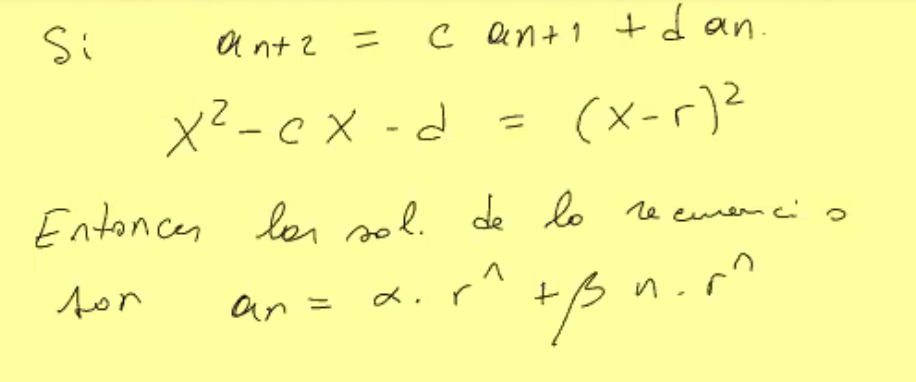 Si aₙ₊₂ = c aₙ₊₁ + d aₙ.
x² - c x - d = (x-r)²
Entonces las sol. de la recurrencia
son aₙ = α. rⁿ + β n. rⁿ